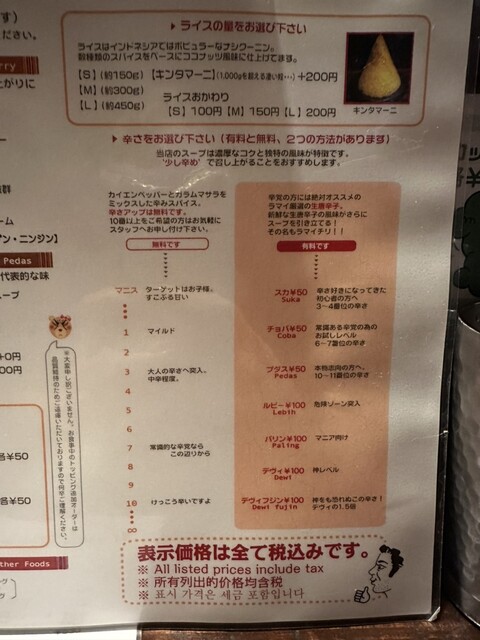 す)
ださい。
rry
上がりに
群
ーム
アン・ニンジン】
Pedas
代表的な味
ープ
+0円
00円
各¥50
各¥50
ther Foods
※大変申し訳ございません。お食事中のトッピング追加オーダーは
品質維持のためご遠慮いただいておりますので何卒ご理解ください。
▶ライスの量をお選び下さい
ライスはインドネシアではポピュラーなナシクーニン。
数種類のスパイスをベースにココナッツ風味に仕上げてます。
【S】(約150g) 【キンタマーニ】(1,000gを超える凄い粒…) +200円
【M】(約300g)
【L】(約450g)
ライスおかわり
【S】100円【M】150円【L】200円
キンタマーニ
▶辛さをお選び下さい(有料と無料、2つの方法があります)
当店のスープは濃厚なコクと独特の風味が特徴です。
'少し辛め'で召し上がることをおすすめします。
カイエンペッパーとガラムマサラを
ミックスした辛みスパイス。
辛さアップは無料です。
10番以上をご希望の方はお気軽に
スタッフへお申し付け下さい。
無料です
マニス ターゲットはお子様。
すこぶる甘い
1 マイルド
2
3 大人の辛さへ突入。
中辛程度。
4
5
6
7 常識的な辛党なら
この辺りから
8
9
10 けっこう辛いですよ
∞
辛党の方には絶対オススメの
ラマイ厳選の生唐辛子。
新鮮な生唐辛子の風味がさらに
スープを引き立てる!
その名もラマイチリ!!
有料です
スカ¥50 辛さ好きになってきた
Suka 初心者の方へ
3〜4番位の辛さ
チョバ¥50 常識ある辛党の為の
Coba お試しレベル
6〜7番位の辛さ
プダス¥50 本格志向の方へ。
Pedas 10〜11番位の辛さ
ルビー¥100 危険ゾーン突入
Lebih
パリン¥100 マニア向け
Paling
デヴィ¥100 神レベル
Dewi
デヴィフジン¥100 神をも恐れぬこの辛さ!
Dewi fujin デヴィの1.5倍
表示価格は全て税込みです。
※ All listed prices include tax
※ 所有列出的价格均含税
※ 표시 가격은 세금 포함입니다